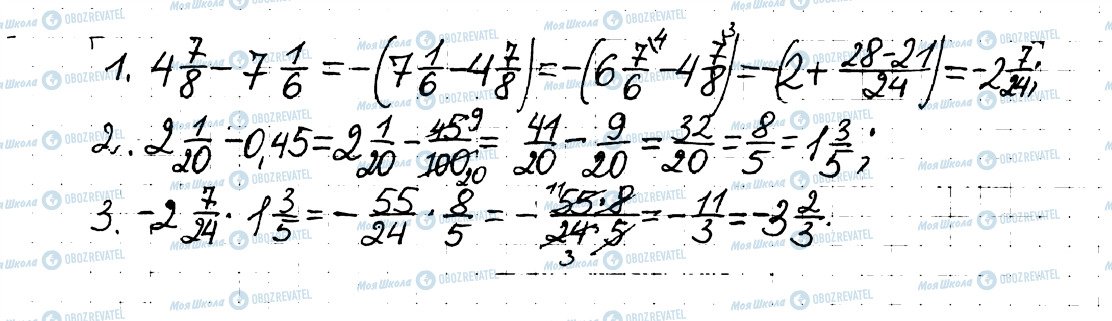 1. 4 7/8 - 7 1/6 = -(7 1/6 - 4 7/8) = -(6 7/6 \4 - 4 7/8 \3) = -(2 + (28-21)/24) = -2 7/24;
2. 2 1/20 - 0,45 = 2 1/20 - 45 9/100 20 = 41/20 - 9/20 = 32/20 = 8/5 = 1 3/5;
3. -2 7/24 · 1 3/5 = -55/24 · 8/5 = - 11 (55·8)/(24·5) 3 = -11/3 = -3 2/3.
Моя Школа OBOZREVATEL